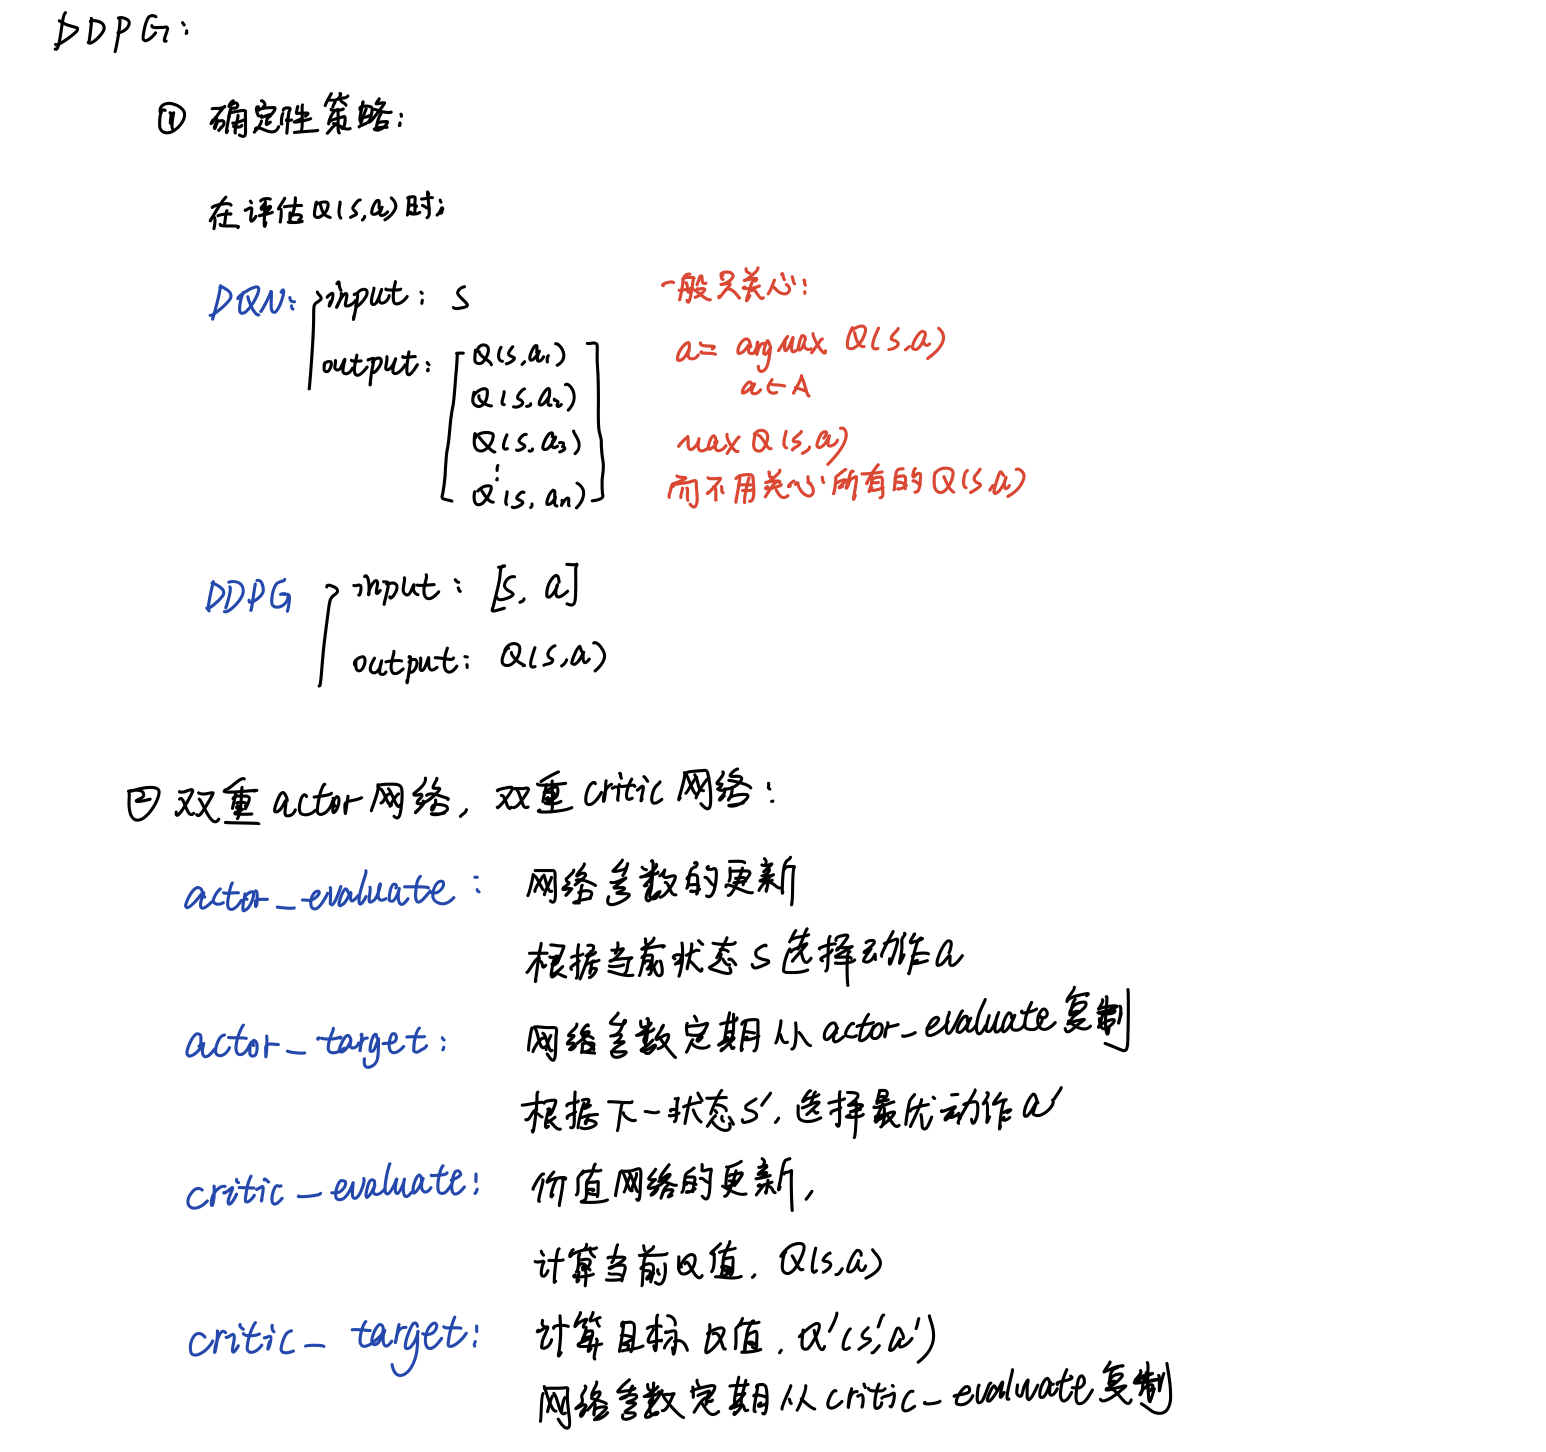 DDPG:
① 确定性策略:
在评估Q(s,a)时;
DQN: input: s
一般只关心:
output: Q(s,a₁)
Q(s,a₂)
Q(s,a₃)
⋮
Q(s,aₙ)
a = argmax Q(s,a)
a∈A
max Q(s,a)
而不用关心所有的Q(s,a)
DDPG input: [s, a]
output: Q(s,a)
② 双重actor网络, 双重critic网络:
actor_evaluate: 网络参数的更新
根据当前状态s选择动作a
actor_target: 网络参数定期从actor_evaluate复制
根据下一状态s′, 选择最优动作a′
critic_evaluate: 价值网络的更新,
计算当前Q值. Q(s,a)
critic_target: 计算目标Q值. Q′(s′,a′)
网络参数定期从critic_evaluate复制